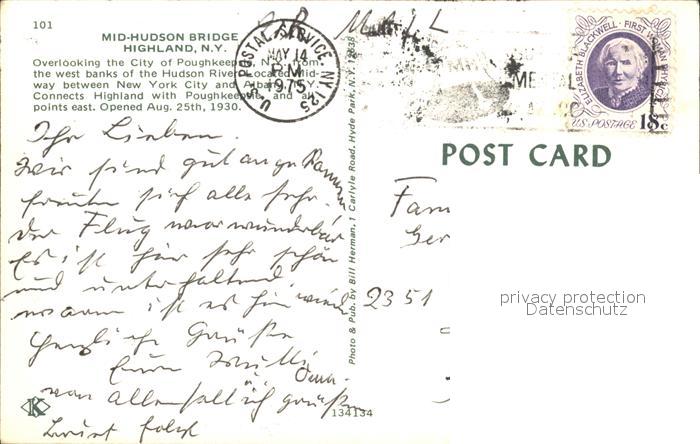 101
MID-HUDSON BRIDGE
HIGHLAND, N.Y.
Overlooking the City of Poughkeepsie, N.Y. from
the west banks of the Hudson River. Located mid-
way between New York City and Albany, N.Y.
Connects Highland with Poughkeepsie, and all
points east. Opened Aug. 25th, 1930.
AIR MAIL
U.S. POSTAL SERVICE, NY 125
MAY 14
PM
1975
ELIZABETH BLACKWELL · FIRST WOMAN PHYSICIAN
U.S. POSTAGE 18c
POST CARD
Ihr Lieben
wir sind gut angekommen
freuten sich alle sehr.
der Flug war wunderbar
Es ist hier sehr schön
und unterhaltend.
warm ist es hier wieder
Herzliche Grüße
Eure Willi
Oma.
von allen soll ich grüßen
Brief folgt
K
134134
Photo & Pub. by Bill Herman, 1 Carlyle Road, Hyde Park, N.Y. 12538
Fam
Ger
2351
privacy protection
Datenschutz